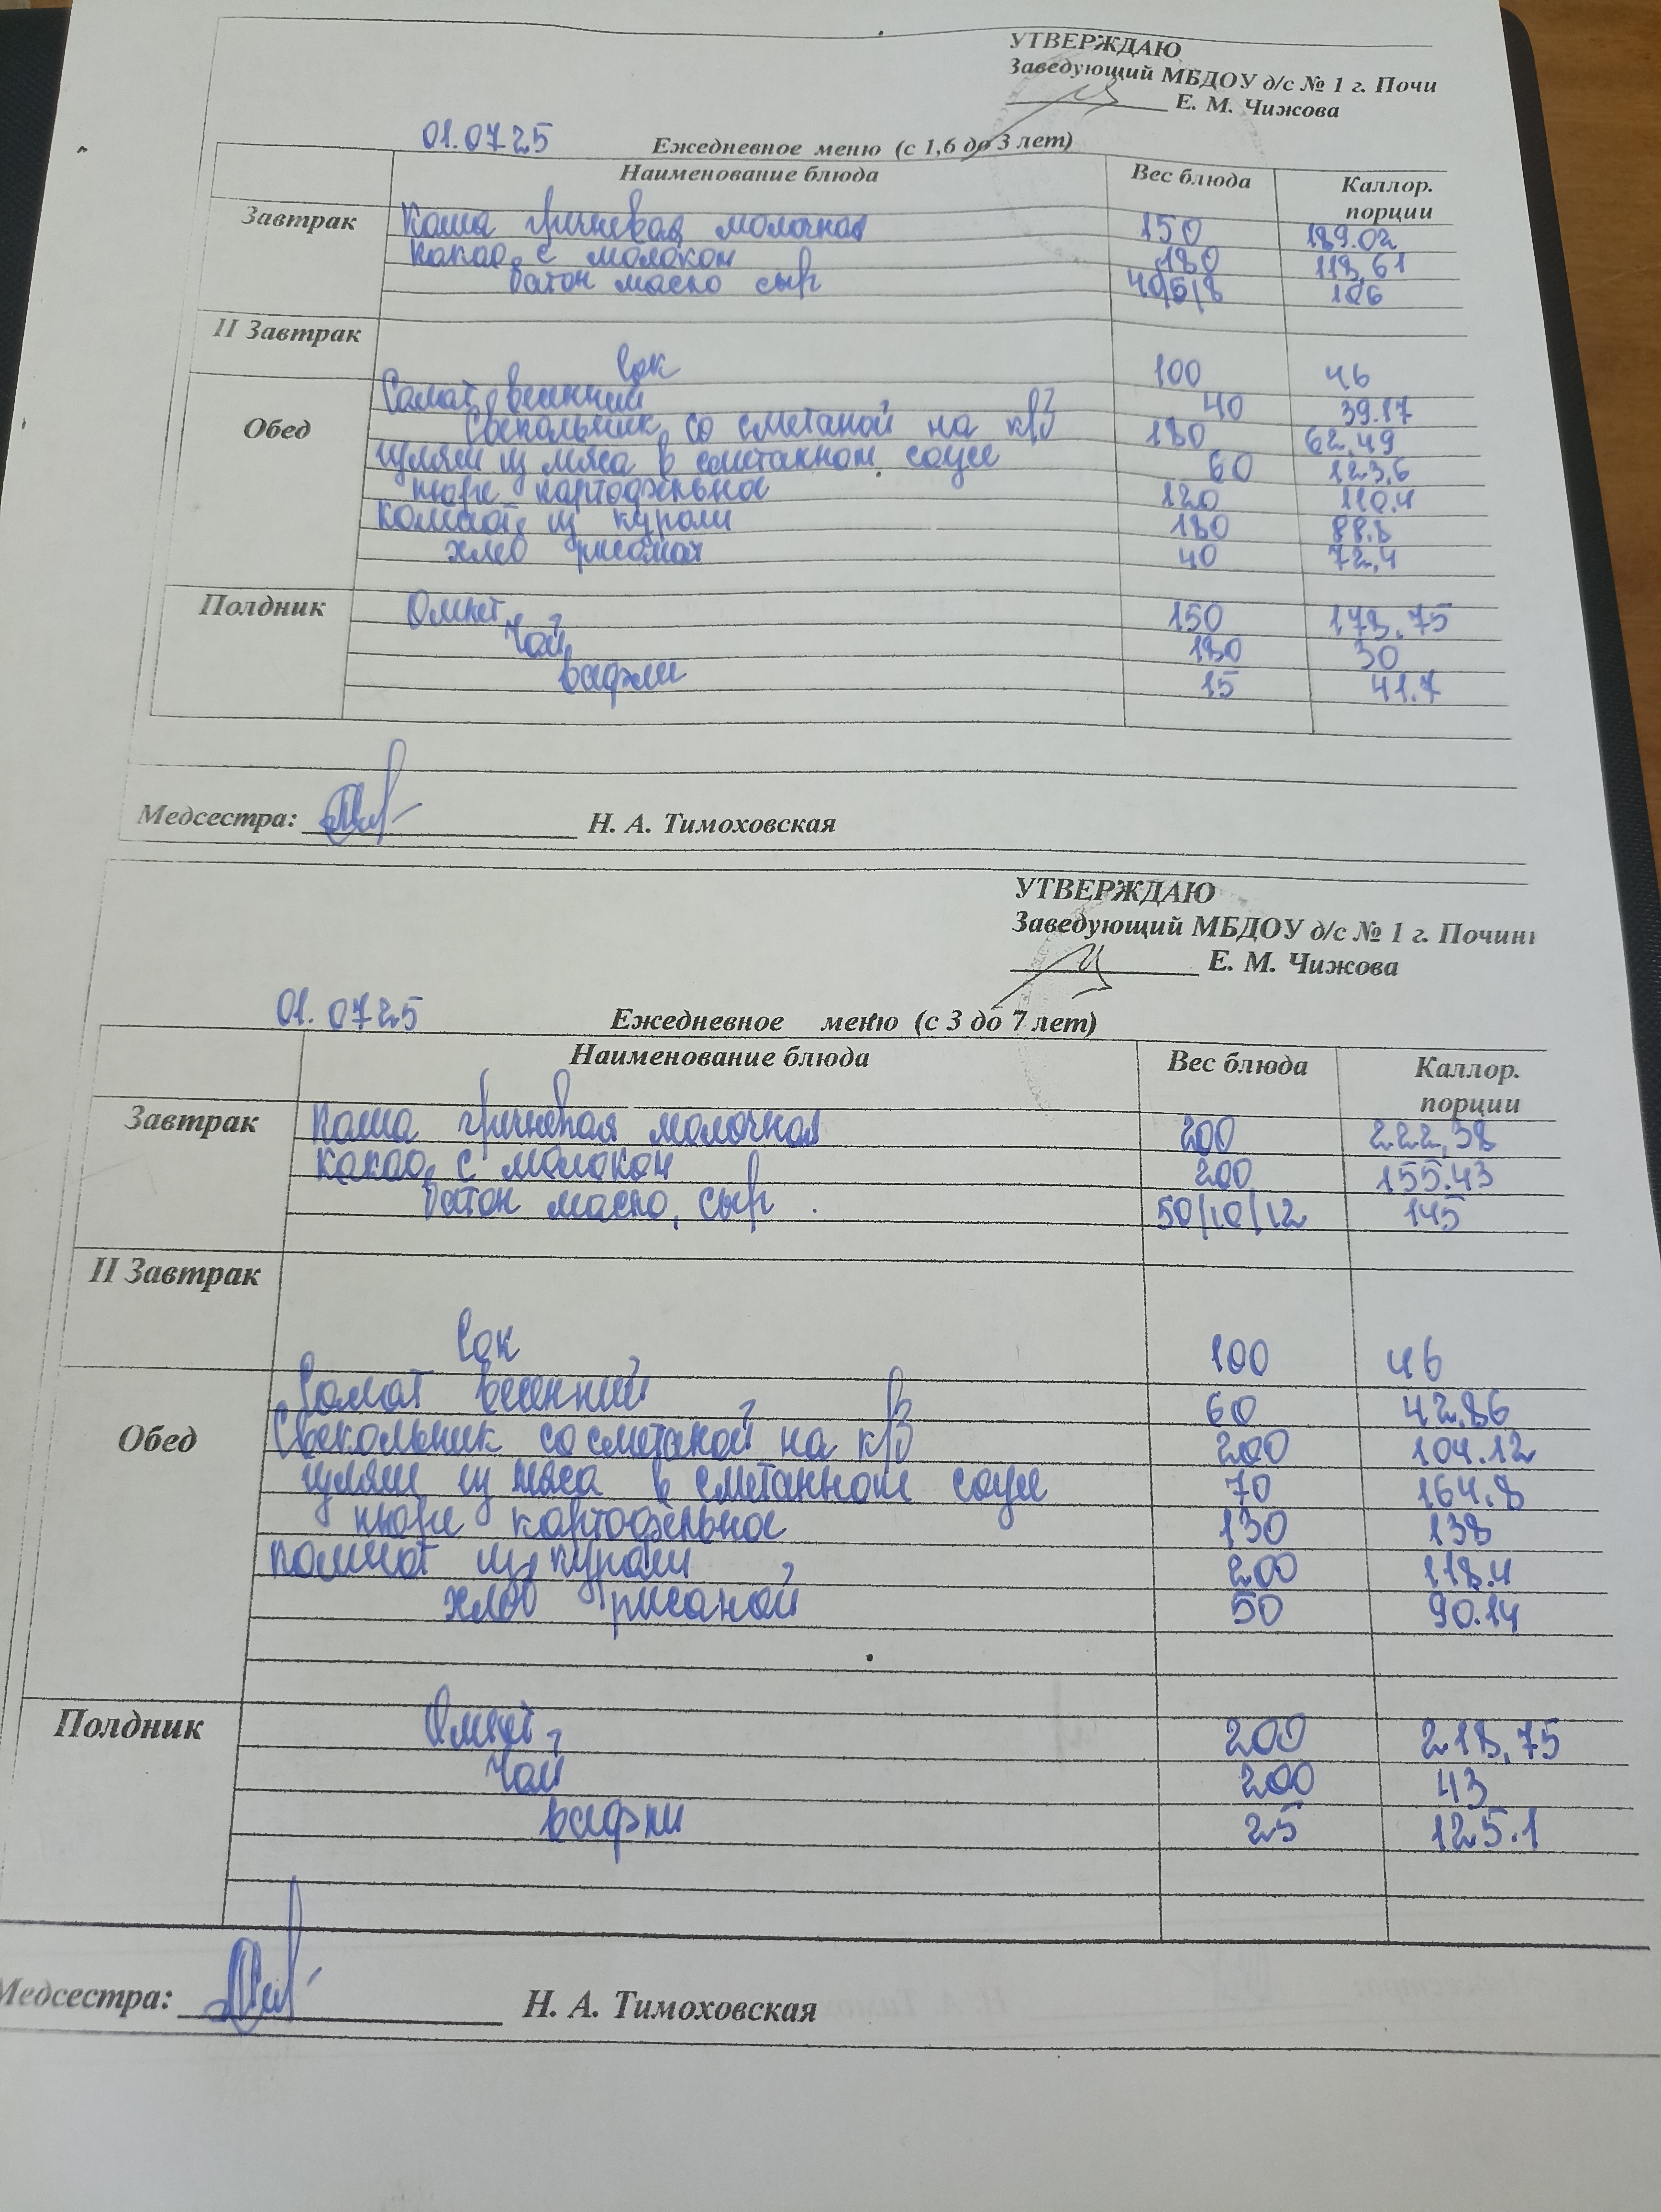 УТВЕРЖДАЮ
Заведующий МБДОУ д/с № 1 г. Почи
Е. М. Чижова
01.07.25 Ежедневное меню (с 1,6 до 3 лет)
Наименование блюда Вес блюда Каллор. порции
Завтрак Каша гречневая молочная 150 189.02
какао с молоком 180 118,61
батон масло сыр 40/5/8 106
II Завтрак
Сок 100 46
Салат весенний 40 39.17
Обед Свекольник со сметаной на к/б 180 62,49
гуляш из мяса в сметанном соусе 60 123,6
пюре картофельное 120 110.4
компот из кураги 180 88.8
хлеб ржаной 40 72,4
Полдник Омлет 150 178.75
Чай 180 30
вафли 15 41.7
Медсестра: Н. А. Тимоховская
УТВЕРЖДАЮ
Заведующий МБДОУ д/с № 1 г. Почин
Е. М. Чижова
01.07.25 Ежедневное меню (с 3 до 7 лет)
Наименование блюда Вес блюда Каллор. порции
Завтрак Каша гречневая молочная 200 222,38
какао с молоком 200 155.43
батон масло, сыр 50/10/12 145
II Завтрак
Сок 100 46
Салат весенний 60 42.86
Обед Свекольник со сметаной на к/б 200 104.12
гуляш из мяса в сметанном соусе 70 164.8
пюре картофельное 130 138
компот из кураги 200 118.4
хлеб ржаной 50 90.14
Полдник Омлет 200 218,75
Чай 200 43
вафли 25 125.1
Медсестра: Н. А. Тимоховская